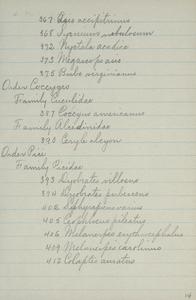 367 Asio accipitrinus
368 Syrnium nebulosum
372 Nyctala acadica
373 Megascops asio
375 Bubo virginianus
Order Coccyges
Family Cuculidae
387 Coccyzus americanus
Family Alcedinidae
390 Ceryle alcyon
Order Pici
Family Picidae
393 Dryobates villosus
394 Dryobates pubescens
402 Sphyrapicus varius
405 Ceophloeus pileatus
406 Melanerpes erythrocephalus
409 Melanerpes carolinus
412 Colaptes auratus